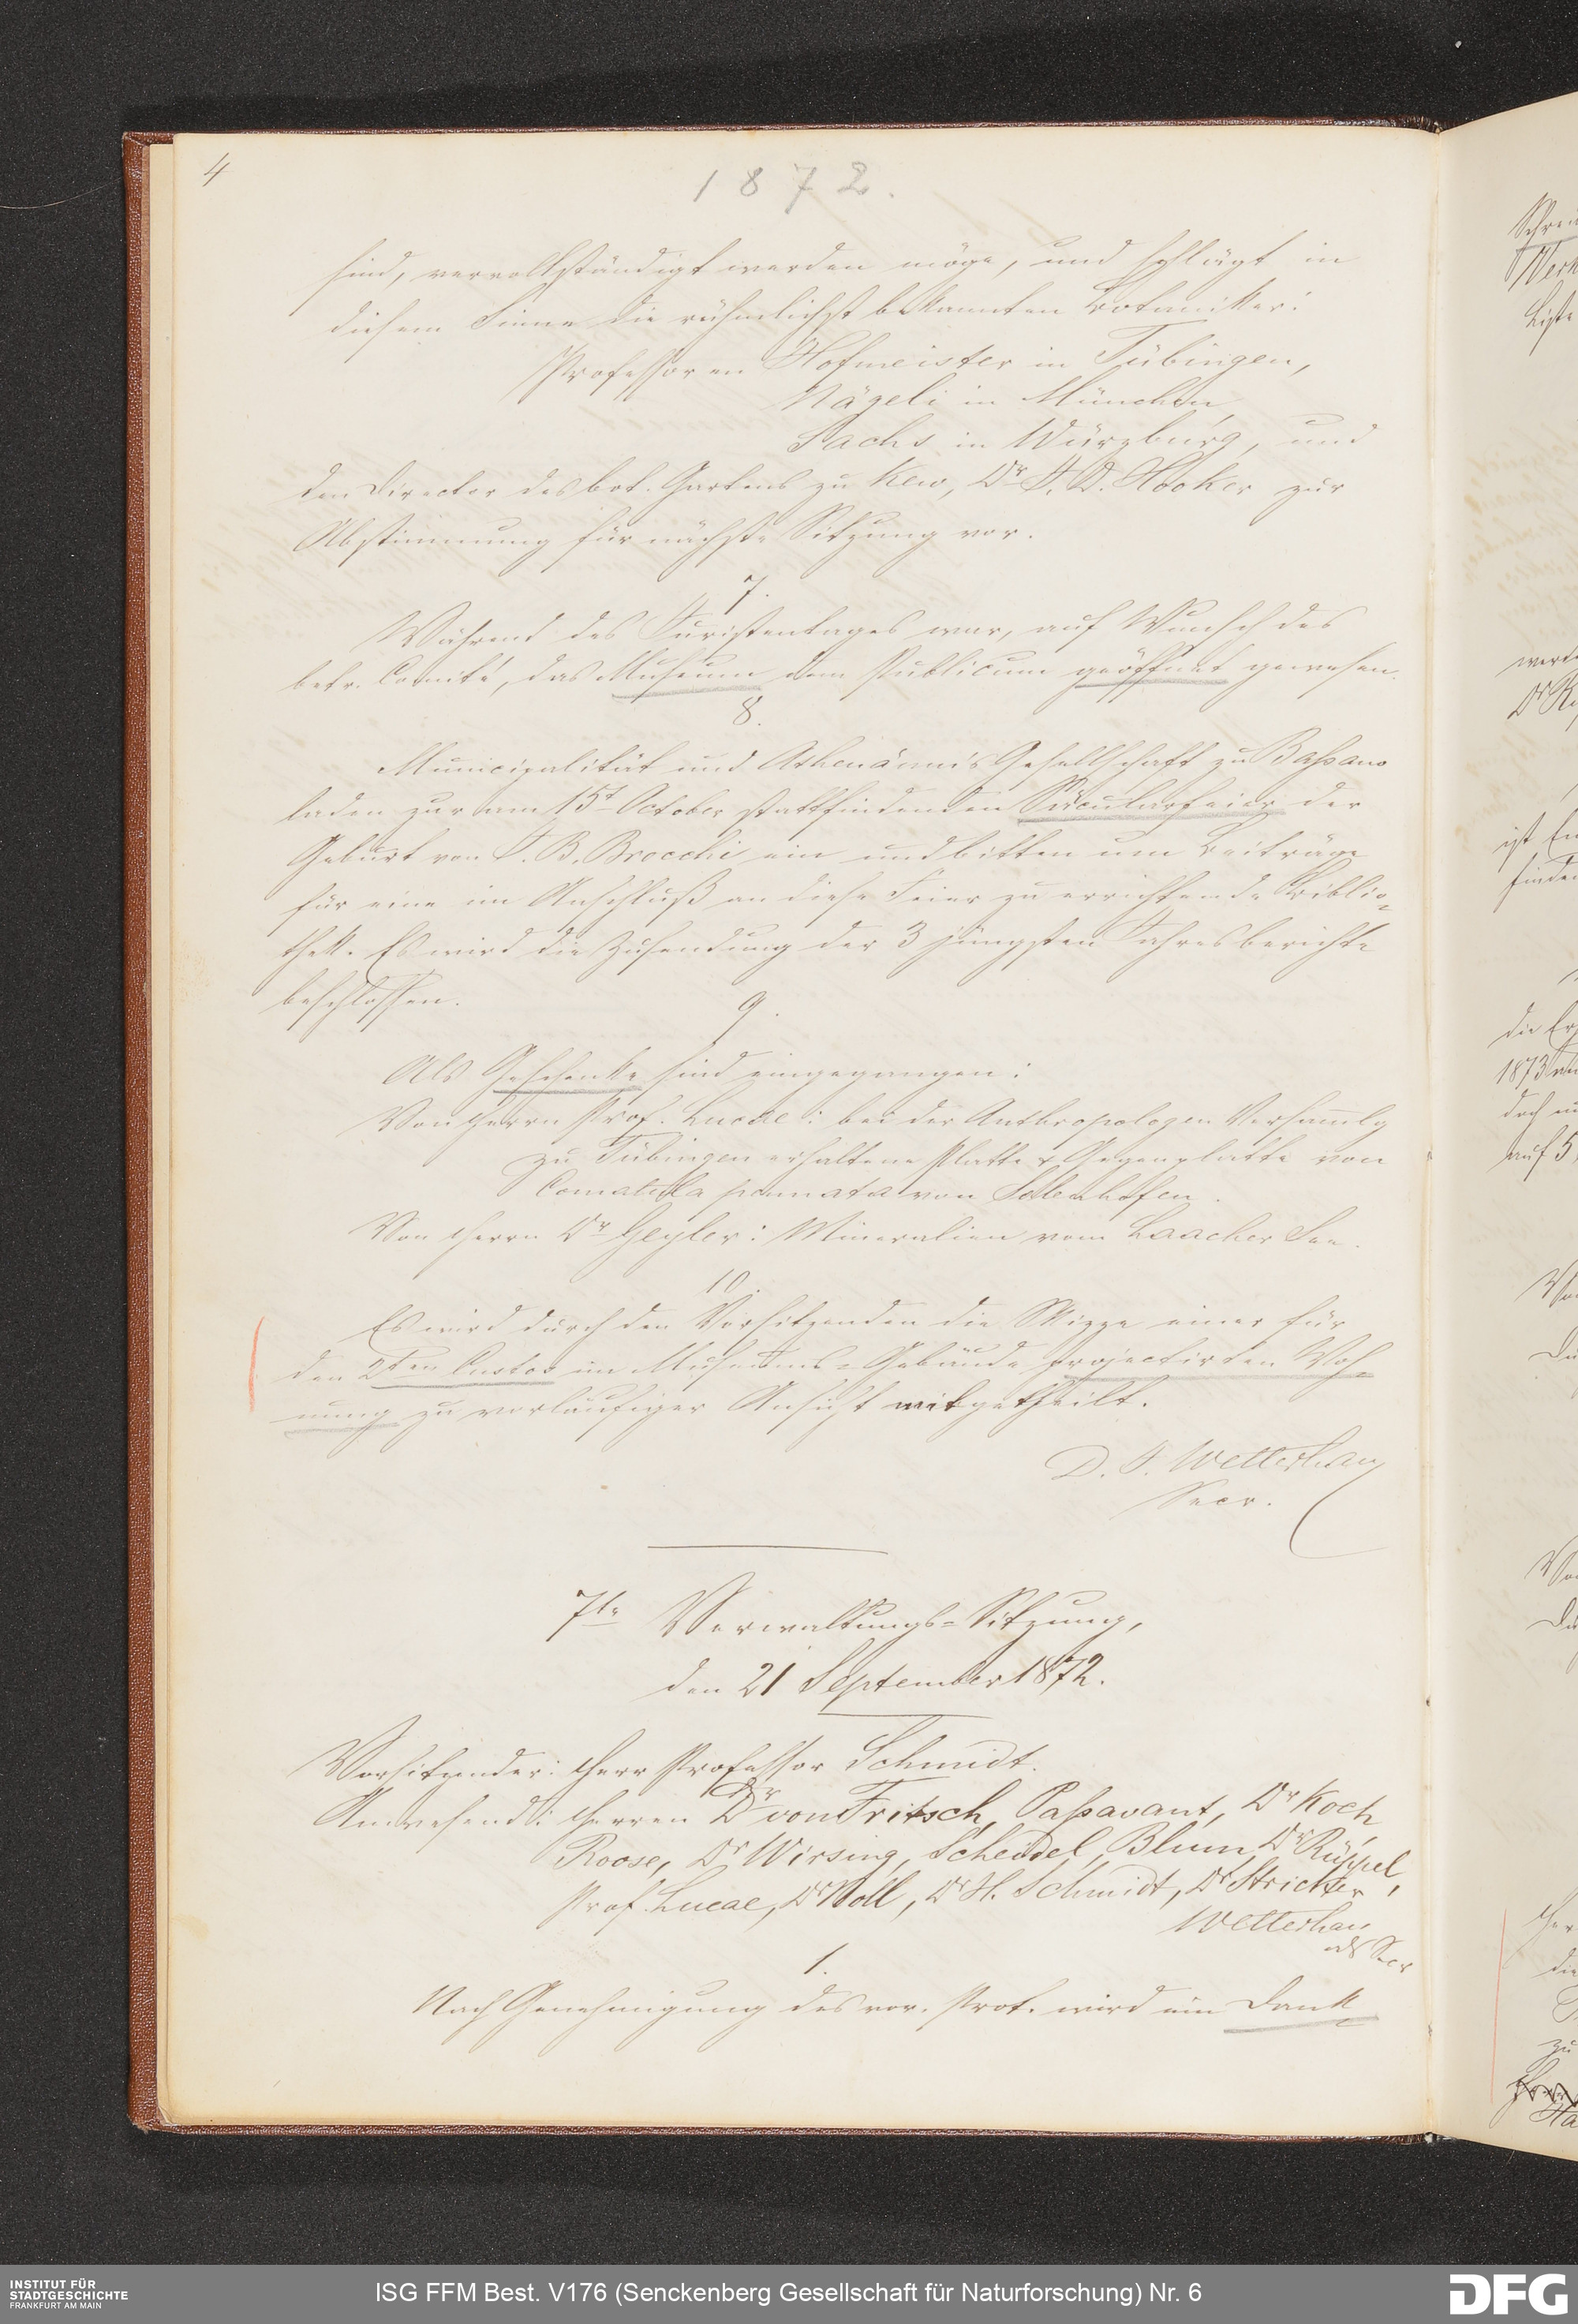 4
1872.
sind, vervollständigt werden möge, und schlägt in
diesem Sinne die rühmlichst bekannten Botaniker:
Professoren Hofmeister in Tübingen,
Nägeli in München
Sachs in Würzburg, und
den Director des bot. Gartens zu Kew, Dr J. D. Hooker zur
Abstimmung für nächste Sitzung vor.
7.
Während des Juristentages war, auf Wunsch des
betr. Comité, das Museum dem Publicum geöffnet gewesen.
8.
Municipalität und Gesellschaft zu Bassano
laden zur am 15t October stattfindenden Säcularfeier der
Geburt von J. B. Brocchi ein und bitten um Beiträge
für eine im Anschluß an diese Feier zu errichtende Biblio-
thek. Es wird die Zusendung der 3 jüngsten Jahresberichte
beschlossen.
9.
Als Geschenke sind eingegangen:
Von Herrn Prof. Lucae: bei der Anthropologen Versamlg
zu Tübingen erhaltene Platte & Gegenplatte von
Comatula pinnata von Solenhofen.
Von Herrn Dr Geyler: Mineralien vom Laacher See.
10.
Es wird durch den Vorsitzenden die Skizze einer für
den 2ten Custos im Museums-Gebäude projectirten Woh-
nung zu vorläufiger Ansicht mitgetheilt.
D. J. Wetterhan
Secr.
7te Verwaltungs-Sitzung,
den 21 September 1872.
Vorsitzender: Herr Professor Schmidt.
Anwesend: Herren Dr von Fritsch, Passavant, Dr Koch,
Roose, Dr Wirsing, Scheidel, Blum, Dr Rüppel,
Prof. Lucae, Dr Noll, Dr H. Schmidt, Dr Stricker,
Wetterhan
als Secr
1.
Nach Genehmigung des vor. Prot. wird ein Dank-
INSTITUT FÜR
STADTGESCHICHTE
FRANKFURT AM MAIN
ISG FFM Best. V176 (Senckenberg Gesellschaft für Naturforschung) Nr. 6
DFG